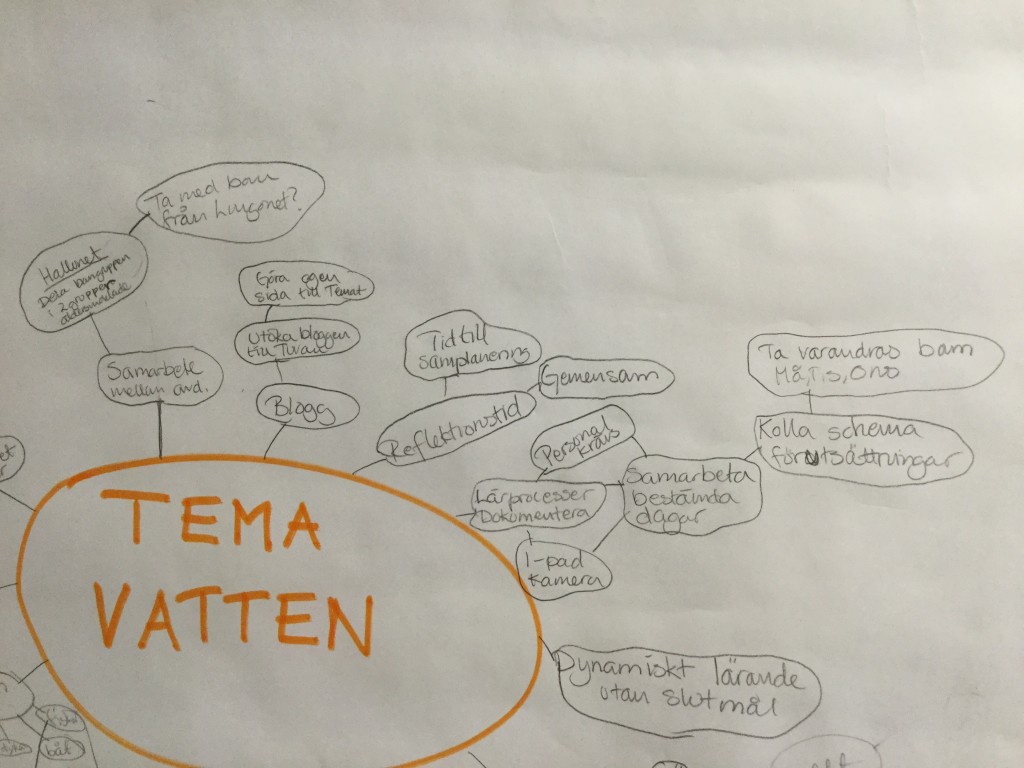 Ta med barn
från Lingonet?
Hallonet
Dela barngruppen
i 2 grupper
åldersindelade
Samarbete
mellan avd.
Göra egen
sida till Temat
Utöka bloggen
till Tuvan
Blogg
Tid till
samplanering
Gemensam
Reflektionstid
Personal
krävs
Lärprocesser
Dokumentera
I-pad
Kamera
Samarbeta
bestämda
dagar
Ta varandras barn
Må, Tis, Ons
Kolla schema
förutsättningar
TEMA
VATTEN
Dynamiskt lärande
utan slutmål
båt